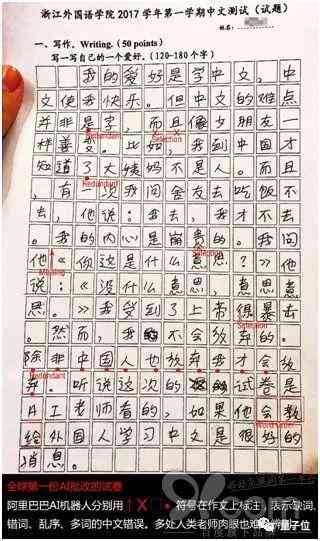 浙江外国语学院 2017 学年第一学期中文测试（试题）
一、写作。Writing.（50 points）
写一写自己的一个爱好。（120-180 个字）
我的爱好是学中文，中
文使我快乐。但中文的难点
并非是字，而且像女朋友一
Redundant
Selection
样善变。比如，我到中国才
知道了大姨妈不是人。而且
Redundant
，有一次我问舍友去吃饭不
去，他说：我去，我才不去
。我的内心是崩贵的。我问
Selection
他《你这是什么意思？》他
Missing
说：《没什么意思，意思意
思。》我受到了上帝很暴击
Selection
。然而，我不会放弃的。
除非中国人也放弃我才会放
Redundant
弃。听说这次的试卷是
AI老师看的，如果他会教
Word order
给外国人学习中文是很好的
消息。
全球第一份AI批改的试卷
阿里巴巴AI机器人分别用 ↑ X □ ● 符号在作文上标注，表示缺词、
错词、乱序、多词的中文错误。多处人类老师肉眼也难
量子位